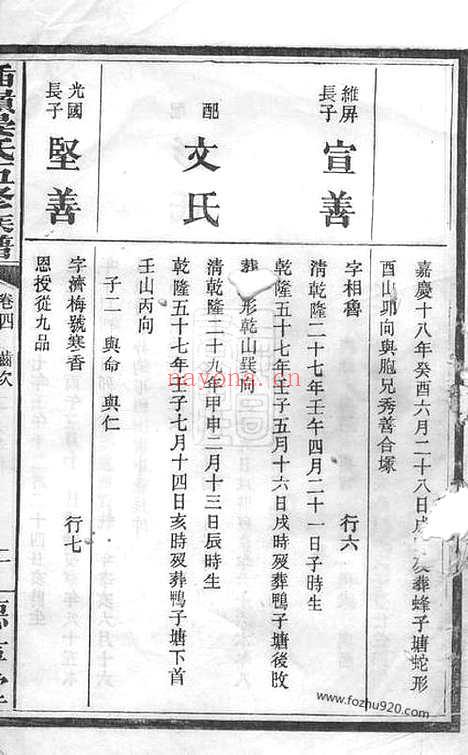 嘉慶十八年癸酉六月二十八日戌 葬蜂子塘蛇形
酉山卯向與胞兄秀善合塚
維屏
長子
宣善
字相魯 行六
清乾隆二十七年壬午四月二十一日子時生
乾隆五十七年壬子五月十六日戌時歿葬鴨子塘後
形乾山巽向
配
文氏
清乾隆二十九年甲申二月十三日辰時生
乾隆五十七年壬子七月十四日亥時歿葬鴨子塘下首
壬山丙向
子二 與命 與仁
光國
長子
堅善
字濟梅號寒香 行七
恩授從九品
氏五修族譜
卷四 齒次
nayona.cn
www.fozhu920.com